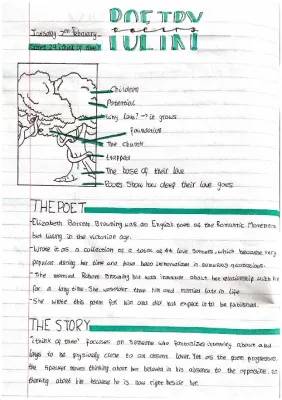 POETRY
Tuesday 2nd February
Children
Potential
Why love? → it grows
foundation
The church
trapped
The base of their love
Roots show how deep their love goes
THE POET
Elizabeth Barrett Browning was an English poet of the Romantic Movement
but living in the victorian age.
Wrote it as a collection of a total of 44 love sonnets, which became very
popular during her time and have been
She married Robert Browning but was insecure about her relationship with him
for a long time. She was older than him and married late in life.
She wrote this poem for him and did not expect it to be published.
THE STORY
"I think of thee" focuses on someone who fantasises about and
longs to be physically close to an absent lover. Yet as the poem progresses,
the speaker moves thinking about her beloved in his absence to the opposite, no
thinking about him, because he is now right beside her.